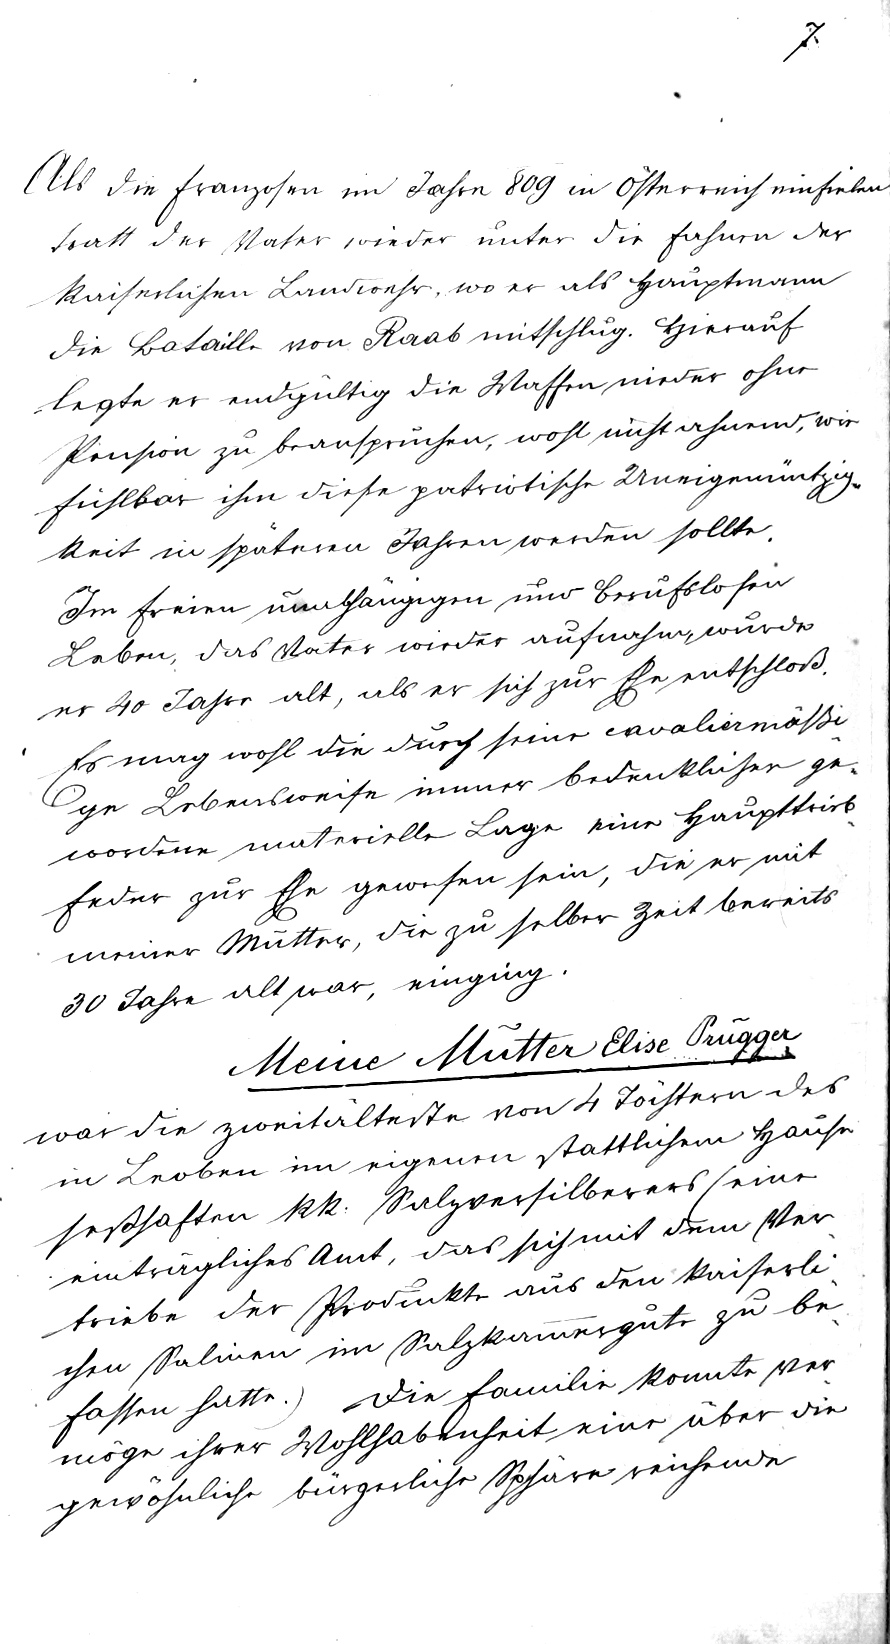 7.
Als die Franzosen im Jahre 809 in Österreich einfielen
tratt der Vater wieder unter die Fahnen der
Kaiserlichen Landwehr, wo er als Hauptmann
die Bataille von Raab mitschlug. Hierauf
legte er endgültig die Waffen nieder ohne
Pension zu beanspruchen, wohl nicht ahnend, wie
fühlbar ihm diese patriotische Uneigennützig-
keit in späteren Jahren werden sollte.
Im freien unabhängigen und berufslosen
Leben, das Vater wieder aufnahm, wurde
er 40 Jahre alt, als er sich zur Ehe entschloß.
Es mag wohl die durch seine cavaliermäßi-
ge Lebensweise immer bedenklicher ge-
wordene materielle Lage eine Haupttrieb-
feder zur Ehe gewesen sein, die er mit
meiner Mutter, die zu selber Zeit bereits
30 Jahre alt war, einging.
Meine Mutter Elise Prugger
war die zweitälteste von 4 Töchtern des
in Leoben im eigenen stattlichem Hause
seßhaften kk. Salzversilberers (eine
einträgliches Amt, das sich mit dem Ver-
triebe der Produkte aus den kaiserli-
chen Salinen im Salzkammergute zu be-
fassen hatte.) Die Familie konnte ver-
möge ihrer Wohlhabenheit eine über die
gewöhnliche bürgerliche Sphäre reichende